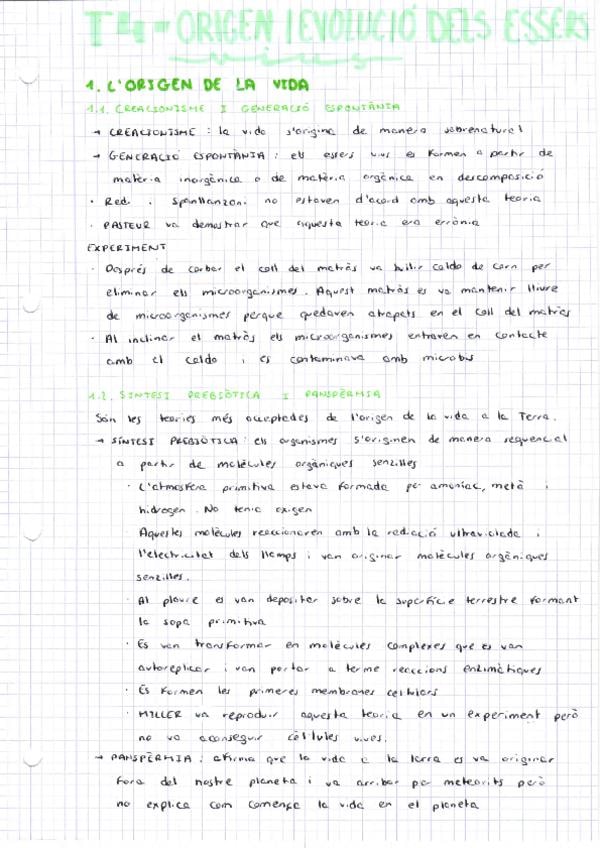 T4 - ORIGEN I EVOLUCIÓ DELS ESSERS
vius
1. L'ORIGEN DE LA VIDA
1.1. CREACIONISME I GENERACIÓ ESPONTÀNIA
→ CREACIONISME : la vida s'origina de manera sobrenatural
→ GENERACIÓ ESPONTÀNIA : els essers vius es formen a partir de
matèria inorgànica o de matèria orgànica en descomposició
· Redi i Spanllanzani no estaven d'acord amb aquesta teoria
· PASTEUR va demostrar que aquesta teoria era errònia
EXPERIMENT
· Després de corbar el coll del matràs va bullir caldo de carn per
eliminar els microorganismes. Aquest matràs es va mantenir lliure
de microorganismes perque quedaven atrapats en el coll del matràs
· Al inclinar el matràs els microorganismes entraven en contacte
amb el caldo i es contaminava amb microbis
1.2. SINTESI PREBIÒTICA I PANSPÈRMIA
Són les teories més acceptades de l'origen de la vida a la Terra.
→ SÍNTESI PREBIÒTICA : els organismes s'originen de manera sequencial
a partir de molècules orgàniques senzilles
· L'atmosfera primitiva estava formada per amoníac, metà i
hidrogen. No tenia oxigen
Aquestes molècules reaccionaren amb la radiació ultraviolada i
l'electricitat dels llamps i van originar molècules orgàniques
senzilles.
· Al ploure es van depositar sobre la superfície terrestre formant
la sopa primitiva
· Es van transformar en molècules complexes que es van
autoreplicar i van portar a terme reaccions enzimàtiques
· Es formen les primeres membranes cel·lulars
· MILLER va reproduir aquesta teoria en un experiment però
no va aconseguir cèl·lules vives.
→ PANSPÈRMIA : afirma que la vida a la terra es va originar
fora del nostre planeta i va arribar per meteorits però
no explica com comença la vida en el planeta